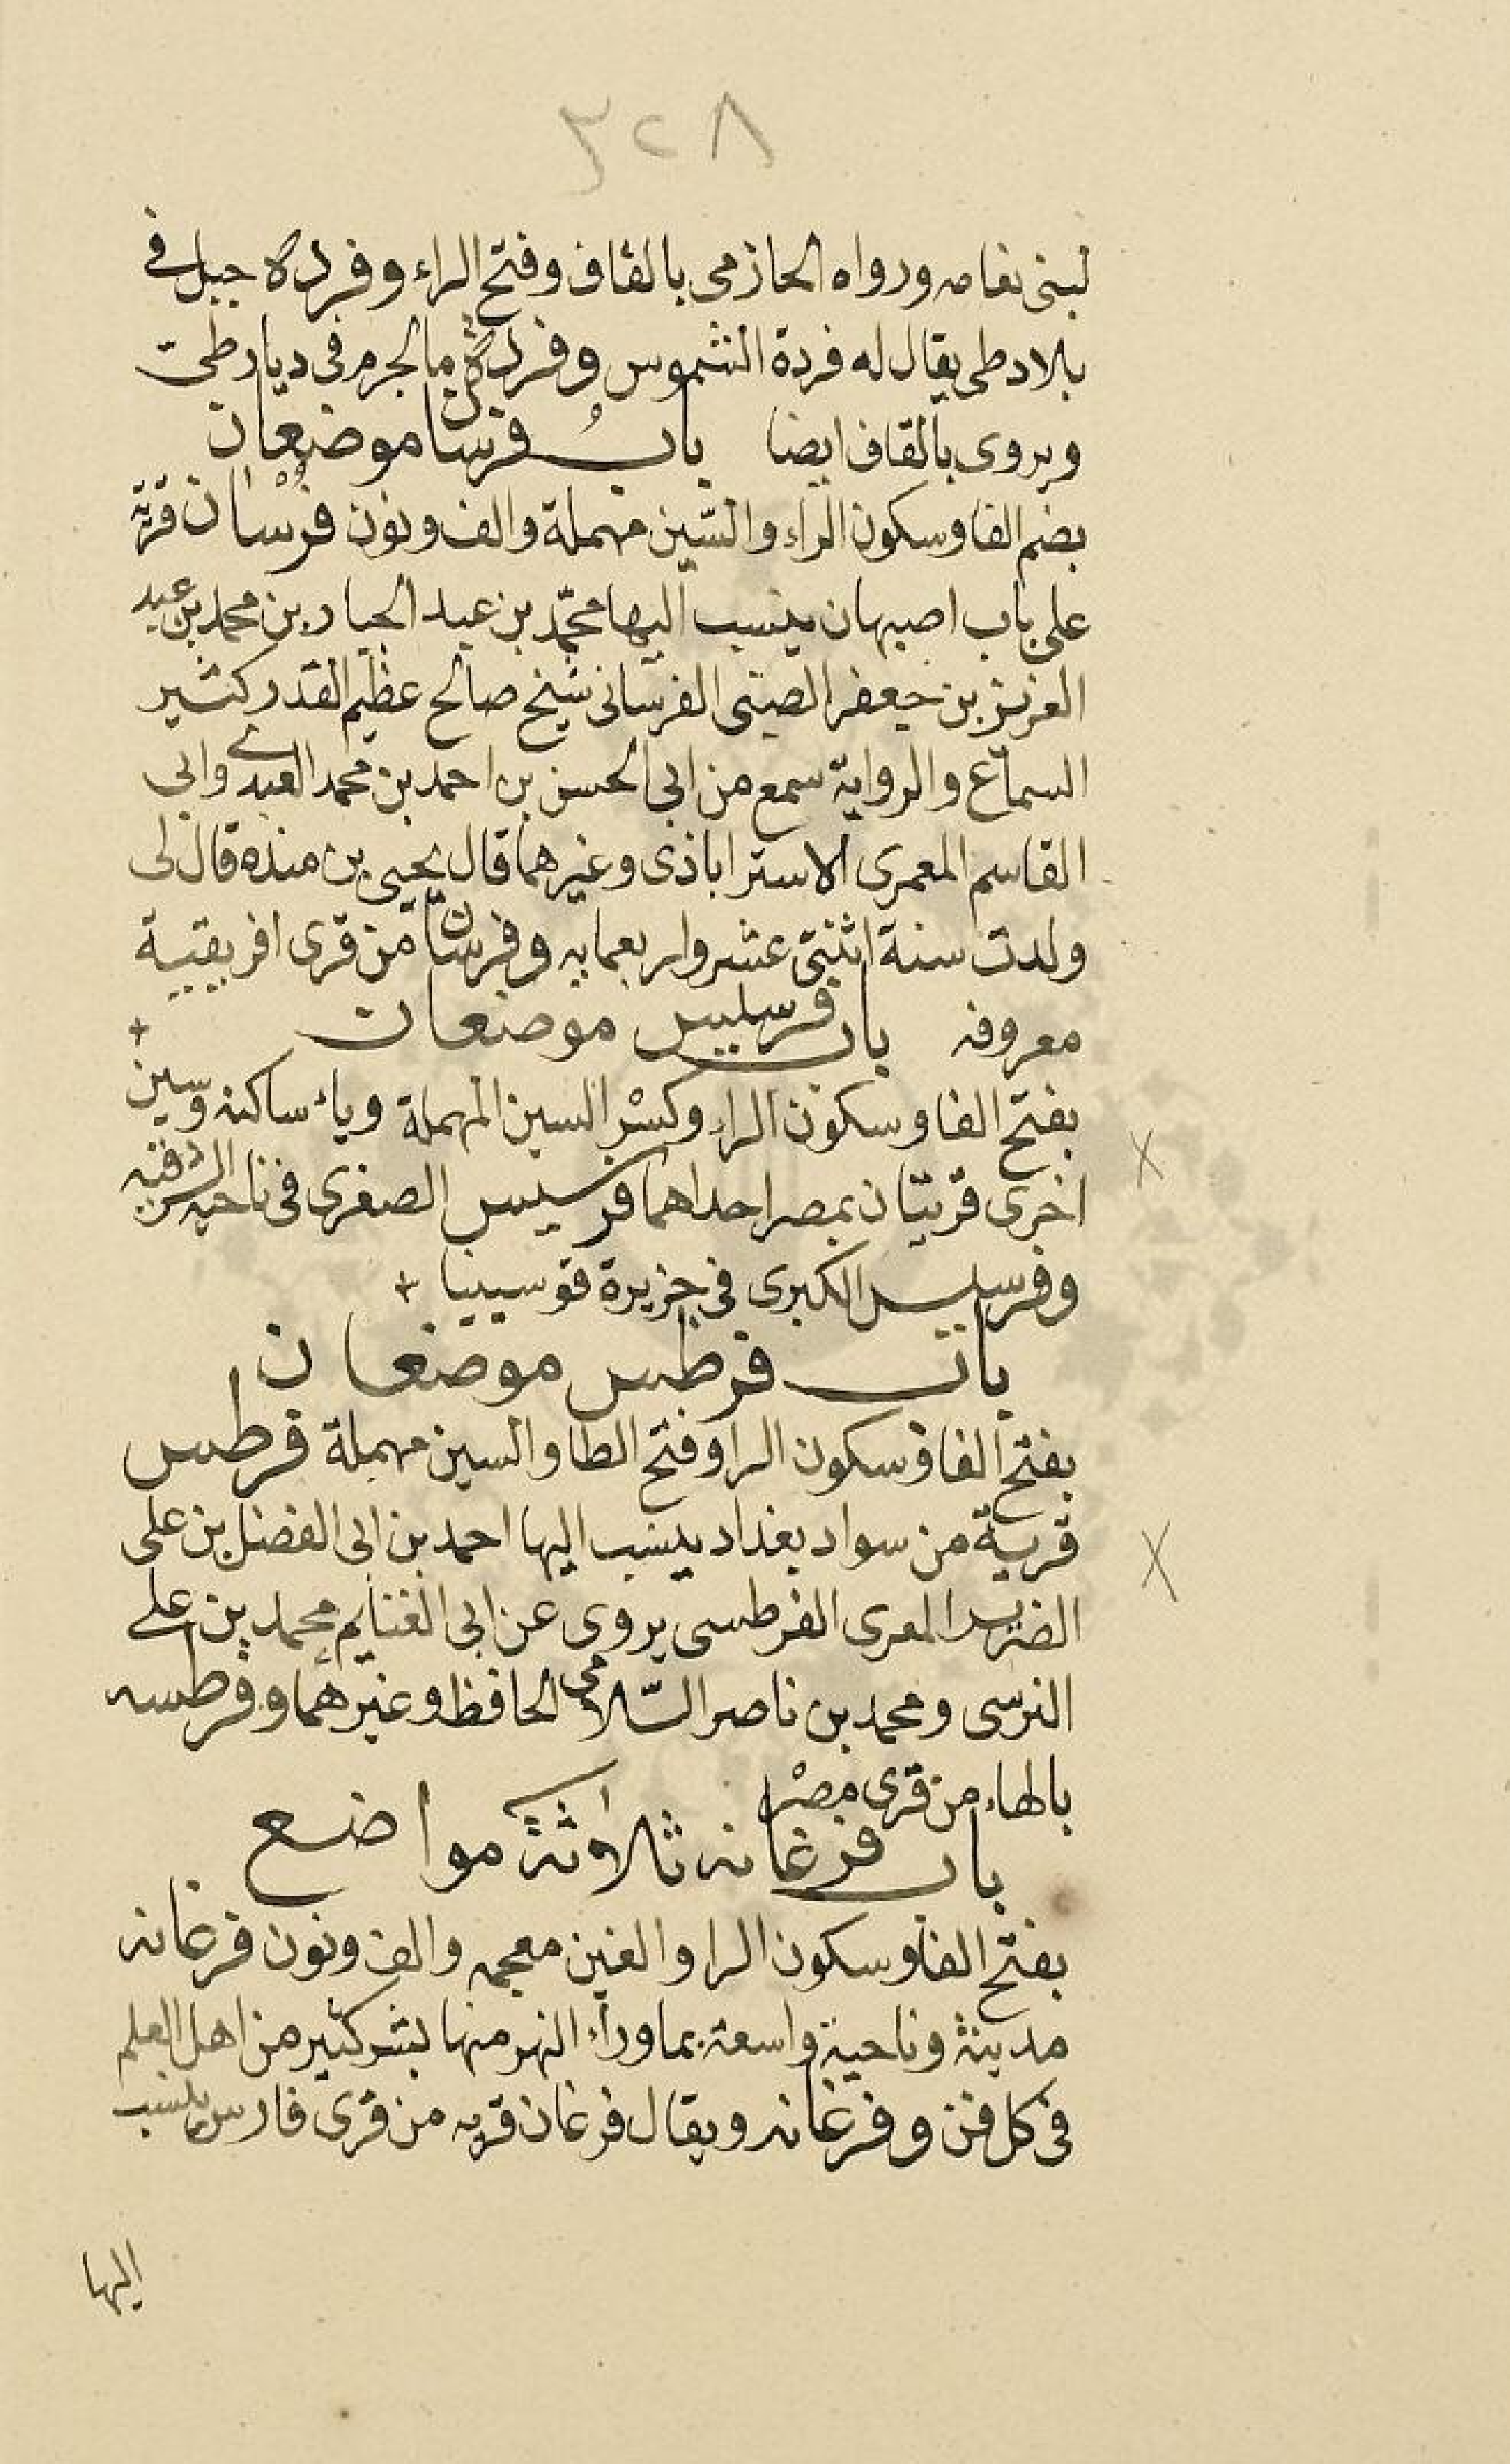 ٣٢٨
لبنى نعامه ورواه الحازمى بالقاف وفتح الراء وفردة جبل فى
بلاد طى يقال له فردة الشموس وفردة ما لجرم فى ديار طىّ
ويروى بالقاف ايضا باب فرسان موضعان
بضم الفا وسكون الراء والسّين مهملة والف ونون فُرْسان قرية
على باب اصبهان ينسب اليها محمّد بن عبد الجبار بن محمد بن عبد
العزيز بن جعفر الضبى الفرسانى شيخ صالح عظيم القدر كثير
السماع والرواية سمع من ابى الحسن بن احمد بن محمد العبدى وابى
القاسم المعمرى الاستراباذى وغيرهما قال يحيى بن منده قال لى
ولدت سنة اثنتى عشر واربعمايه وفرسان من قرى افريقيية
معروفه باب فرسيس موضعان +
بفتح الفا وسكون الراء وكسْر السين المهملة وياء ساكنه وسين
اخرى قريتان بمصر احداهما فرسيس الصغرى فى ناحيه الشرقيه
وفرسيس الكبرى فى جزيرة قوسينيا +
باب فرطس موضعان
بفتح الفا وسكون الرا وفتح الطا والسين مهملة فرطس
قرية من سواد بغداد ينسب اليها احمد بن ابى الفضل بن على
الضرير المعرى الفرطسى يروى عن ابى الغنايم محمد بن على
النرسى ومحمد بن ناصر السّلامى الحافظ وغيرهما وفرطسه
بالهاء من قرى مصْر
باب فرغانه ثلاثة مواضع
بفتح الفا وسكون الرا والغين معجمه والف ونون فرغانه
مدينة وناحية واسعة بما وراء النهر منها بشر كثير من اهل العلم
فى كل فن وفرغانه ويقال فرغان قريه من قرى فارس ينسب
اليها